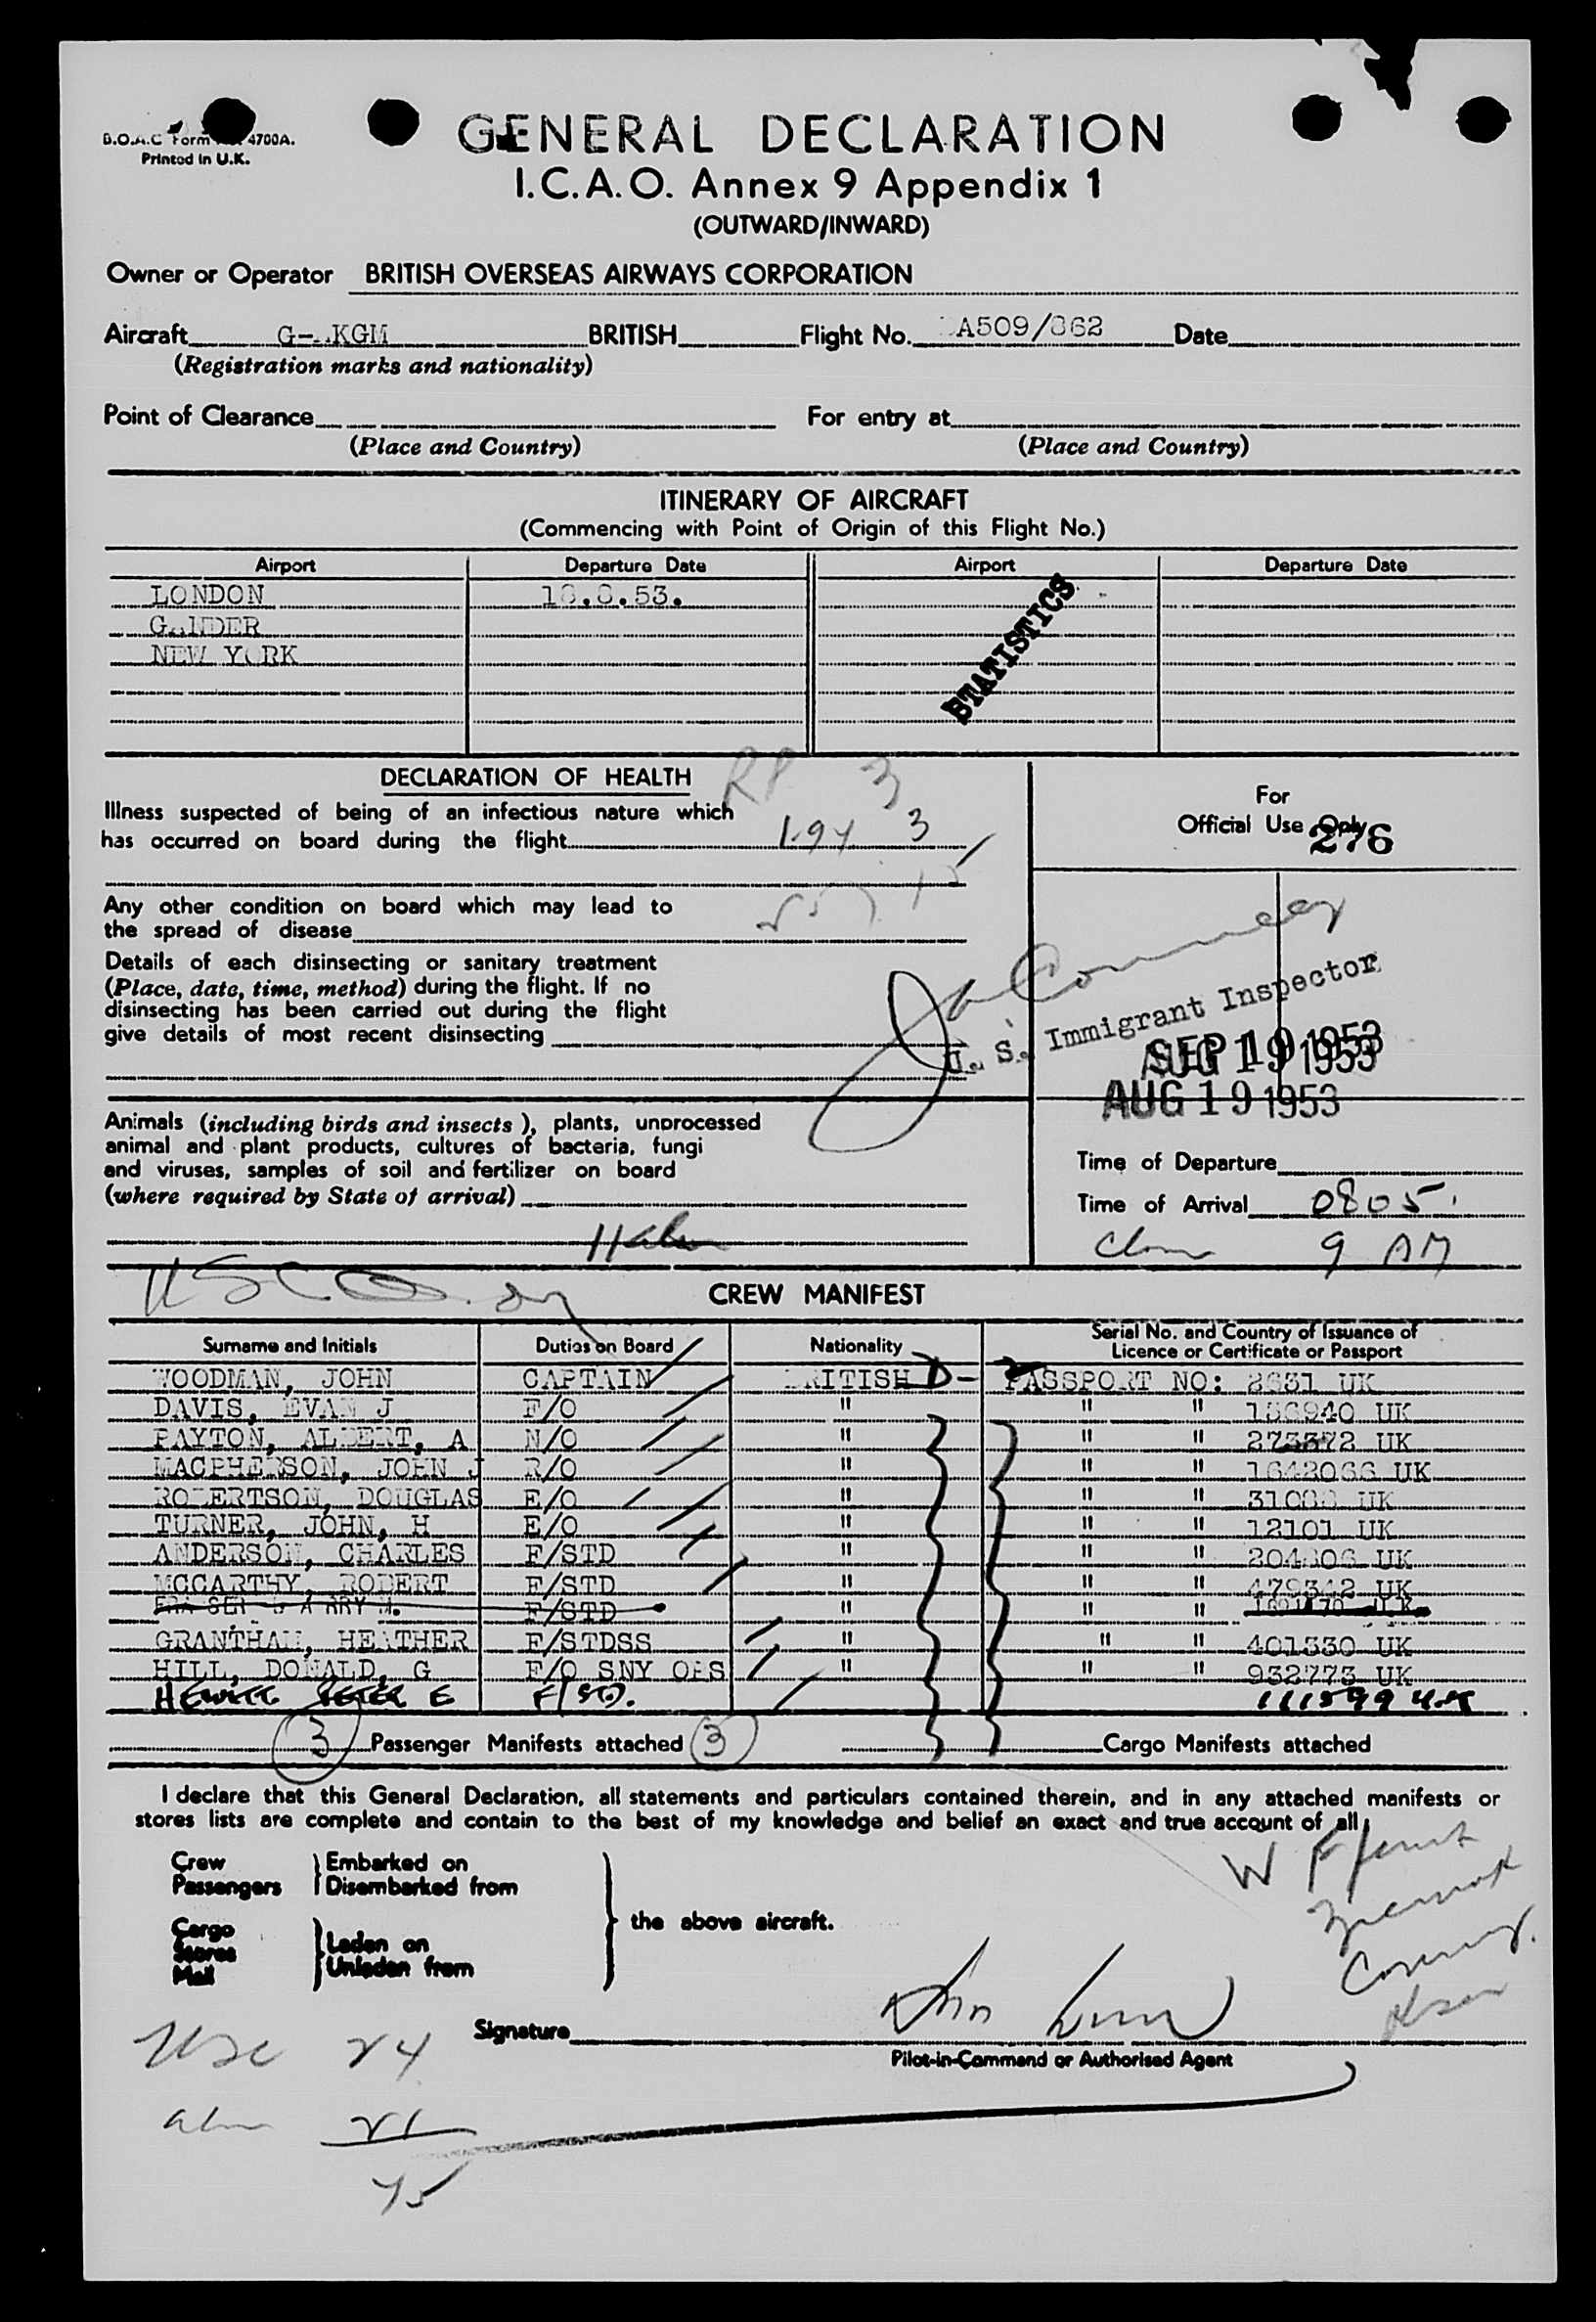 B.O.A.C Form 4700A.
Printed in U.K.
GENERAL DECLARATION
I.C.A.O. Annex 9 Appendix 1
(OUTWARD/INWARD)
Owner or Operator BRITISH OVERSEAS AIRWAYS CORPORATION
Aircraft G-AKGM BRITISH Flight No. BA509/862 Date
(Registration marks and nationality)
Point of Clearance For entry at
(Place and Country) (Place and Country)
ITINERARY OF AIRCRAFT
(Commencing with Point of Origin of this Flight No.)
Airport Departure Date Airport Departure Date
LONDON 18.8.53.
GANDER
NEW YORK
STATISTICS
DECLARATION OF HEALTH
RP 3
Illness suspected of being of an infectious nature which
has occurred on board during the flight 3
Any other condition on board which may lead to
the spread of disease
Details of each disinsecting or sanitary treatment
(Place, date, time, method) during the flight. If no
disinsecting has been carried out during the flight
give details of most recent disinsecting
Animals (including birds and insects), plants, unprocessed
animal and plant products, cultures of bacteria, fungi
and viruses, samples of soil and fertilizer on board
(where required by State of arrival)
For
Official Use Only
276
U. S. Immigrant Inspector
SEP 19 1953
AUG 19 1953
AUG 19 1953
Time of Departure
Time of Arrival 0805
9 AM
CREW MANIFEST
Surname and Initials Duties on Board Nationality Serial No. and Country of Issuance of
Licence or Certificate or Passport
WOODMAN, JOHN CAPTAIN BRITISH D- PASSPORT NO: 2631 UK
DAVIS, EVAN J F/O " " " 186940 UK
PAYTON, ALBERT, A N/O " " " 273372 UK
MACPHERSON, JOHN J R/O " " " 1642066 UK
ROBERTSON, DOUGLAS E/O " " " 31088 UK
TURNER, JOHN, H E/O " " " 12101 UK
ANDERSON, CHARLES F/STD " " " 204806 UK
MCCARTHY, ROBERT F/STD " " " 479342 UK
F/STD " " "
GRANTHAM, HEATHER F/STDSS " " " 401330 UK
HILL, DONALD, G F/O SNY OPS " " " 932773 UK
HEWITT PETER E F/STD. 111599 U.K
3 Passenger Manifests attached 3 Cargo Manifests attached
I declare that this General Declaration, all statements and particulars contained therein, and in any attached manifests or
stores lists are complete and contain to the best of my knowledge and belief an exact and true account of all
Crew Embarked on
Passengers Disembarked from
the above aircraft.
Cargo
Stores Laden on
Mail Unladen from
Signature
Pilot-in-Command or Authorised Agent
USC 24
21
45